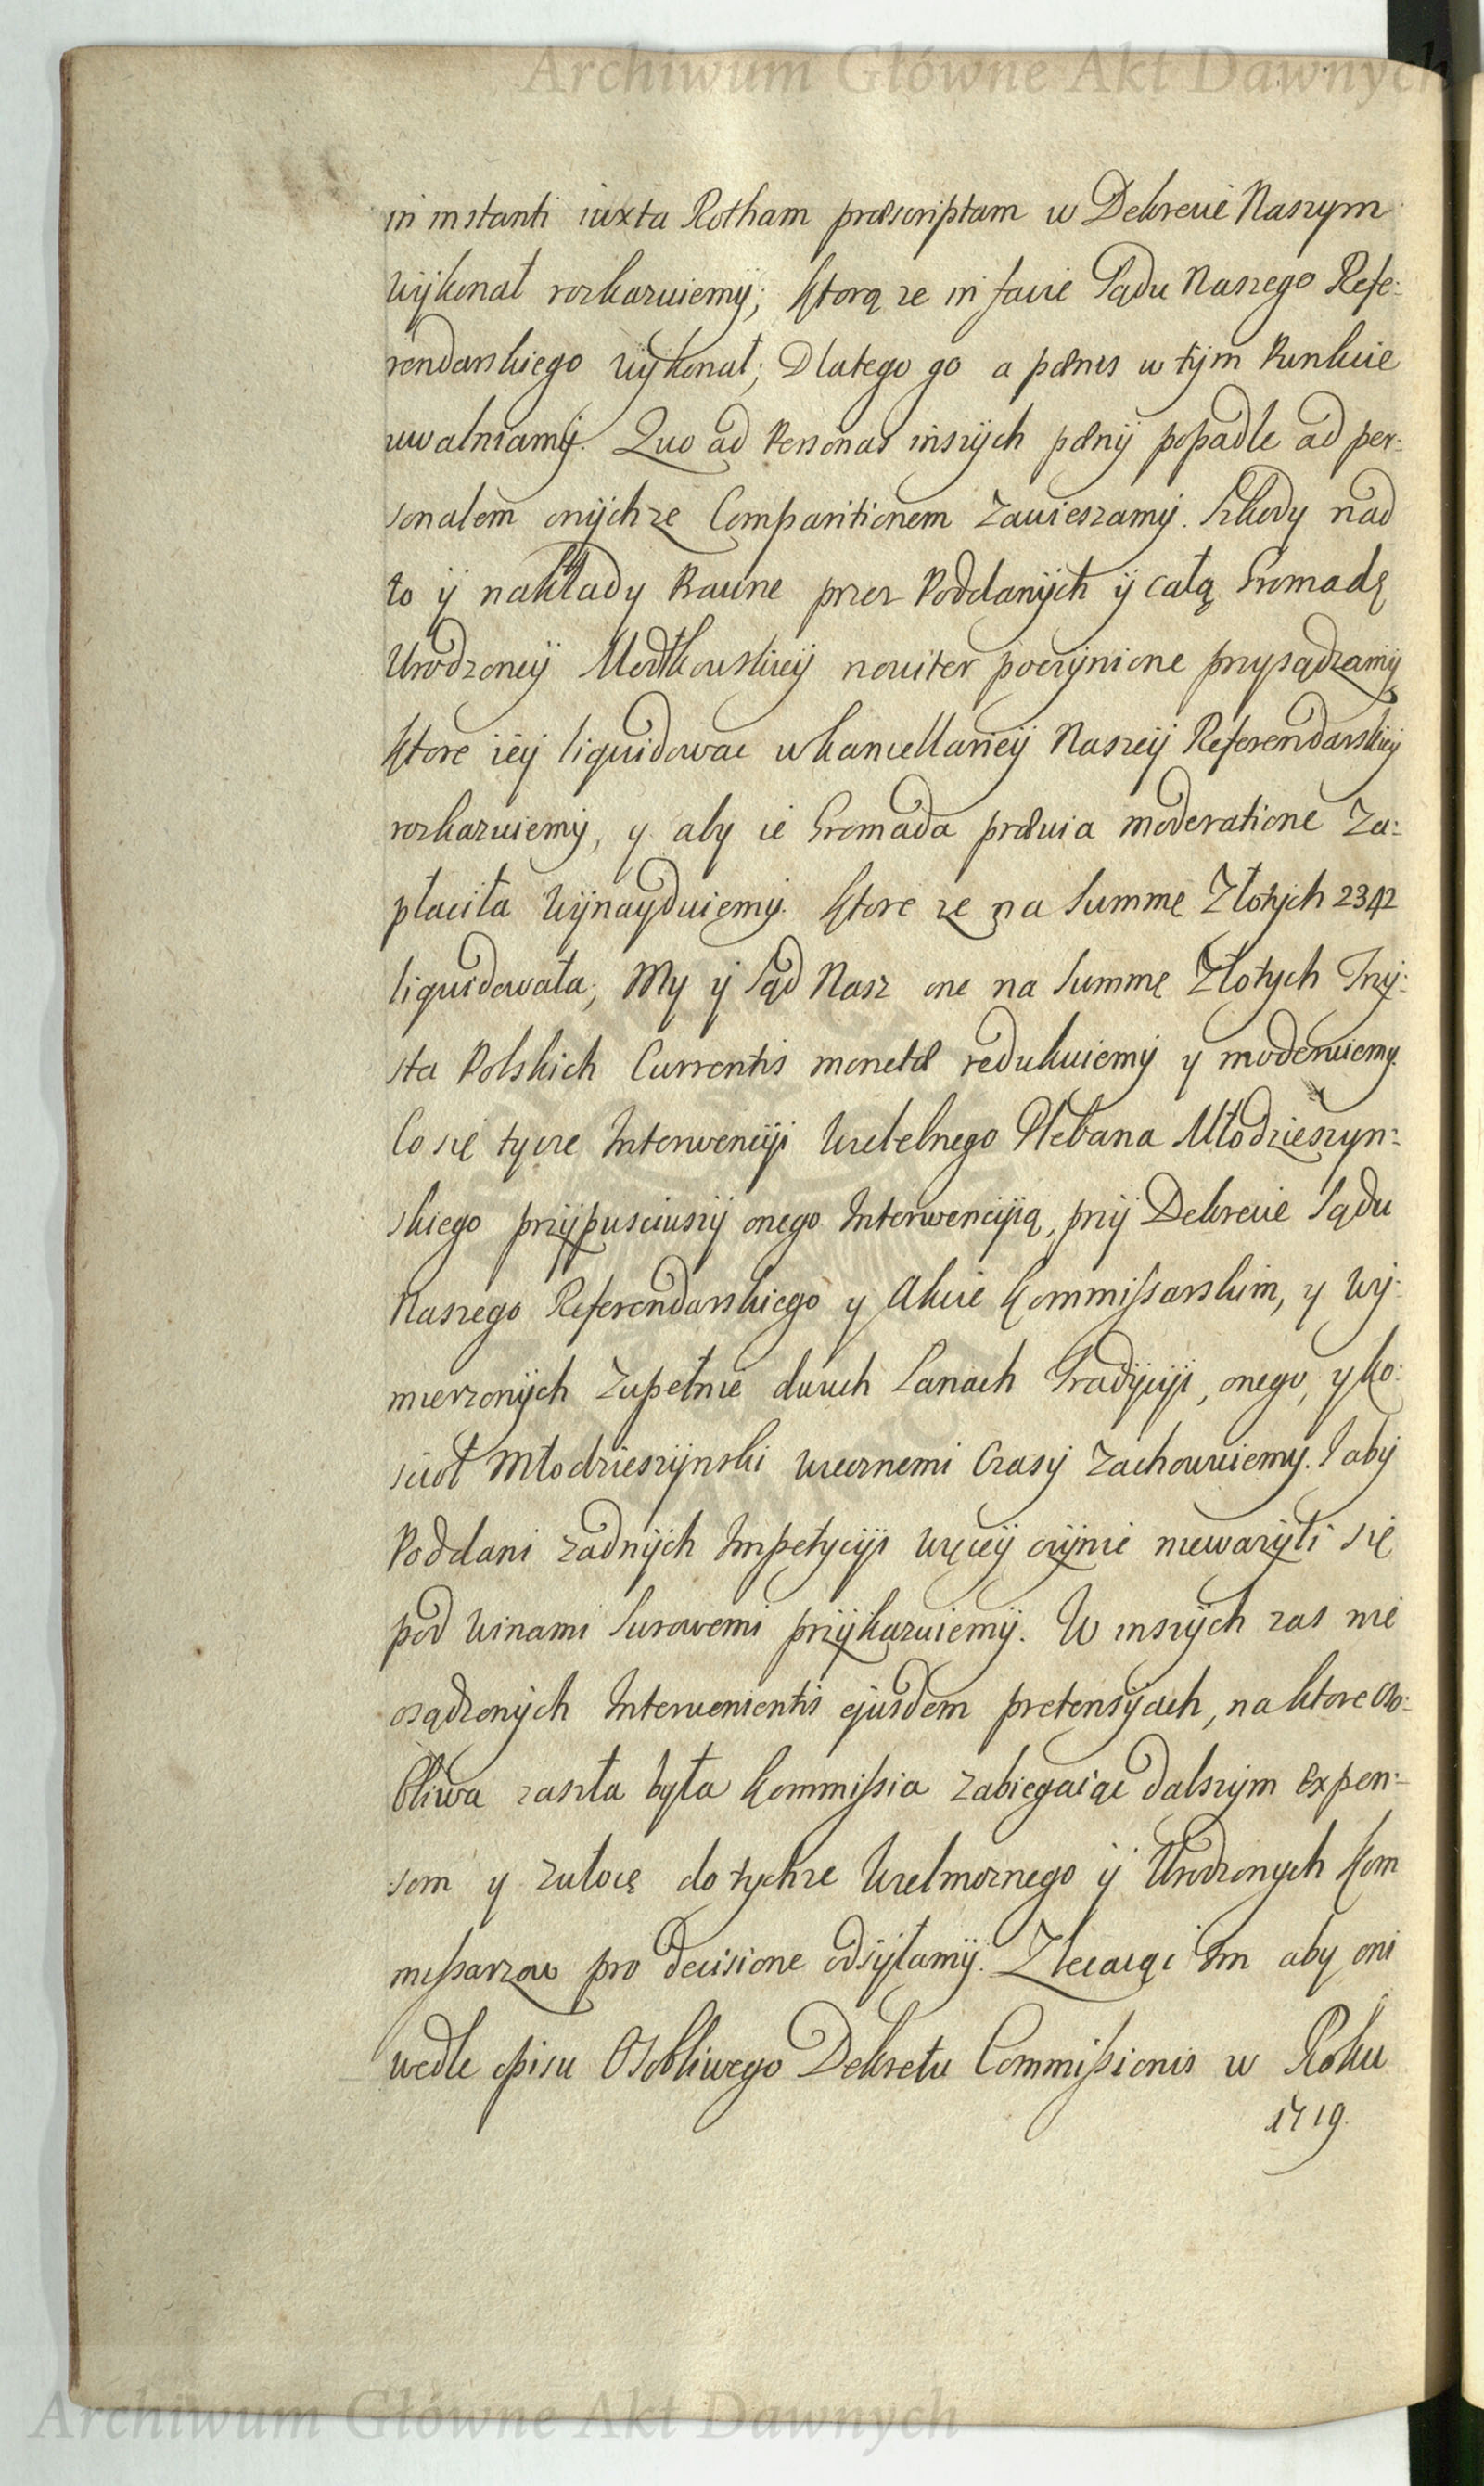 Archiwum Główne Akt Dawnych
in instanti iuxta Rotham præscriptam w Dekrecie Naszym
wÿkonał rozkazuiemÿ; ktorą ze in facie Sądu Naszego Refe:
rendarskiego wÿkonał; Dlatego go a pænis w tÿm Punkcie
uwalniamÿ. Quo ad Personas inszÿch pænÿ popadłe ad per:
sonalem onÿchze Comparitionem Zawieszamÿ. Szkody nad
to ÿ nakłady Prawne przez Poddanÿch ÿ całą Gromadę
Urodzoneÿ Modtkowskieÿ noviter poczÿnione przysądzamÿ,
ktore ieÿ liquidowac w kancellarieÿ Naszeÿ Referendarskieÿ
rozkazuiemÿ, y aby ie Gromada prævia moderatione Za:
płaciła wÿnayduiemÿ. ktore ze na Summę Złotÿch 2342
liquidowała; My ÿ Sąd Nasz one na Summę Złotych Trzÿ:
sta Polskich Currentis monetæ redukuiemÿ y moderuiemy.
Co się tycze Interwencÿi Wielebnego Plebana Młodzieszyn:
skiego przÿpusciwszÿ onego Interwencÿią, przÿ Dekrecie Sądu
Naszego Referendarskiego y Akcie Kommissarskim, y wÿ:
mierzonÿch Zupełnie dwuch Łanach Tradÿcÿi, onego, y ko:
scioł Młodzieszÿnski wiecznemi Czasÿ Zachowuiemy. I abÿ
Poddani zadnÿch Impetycÿi więceÿ czÿnic niewazÿli się
pod winami Surowemi przÿkazuiemÿ. W inszÿch zas nie
osądzonÿch Intervenientis ejusdem pretensÿach, na ktore oso:
bliwa zaszła była Kommissia Zabiegaiąc dalszÿm expen:
som y zwłocę do tychze Wielmoznego ÿ Urodzonych Kom
missarzow pro decisione odsÿłamÿ. Zlecaiąc Im aby oni
wedle opisu Osobliwego Dekretu Commissionis w Roku
1719.
Archiwum Główne Akt Dawnych